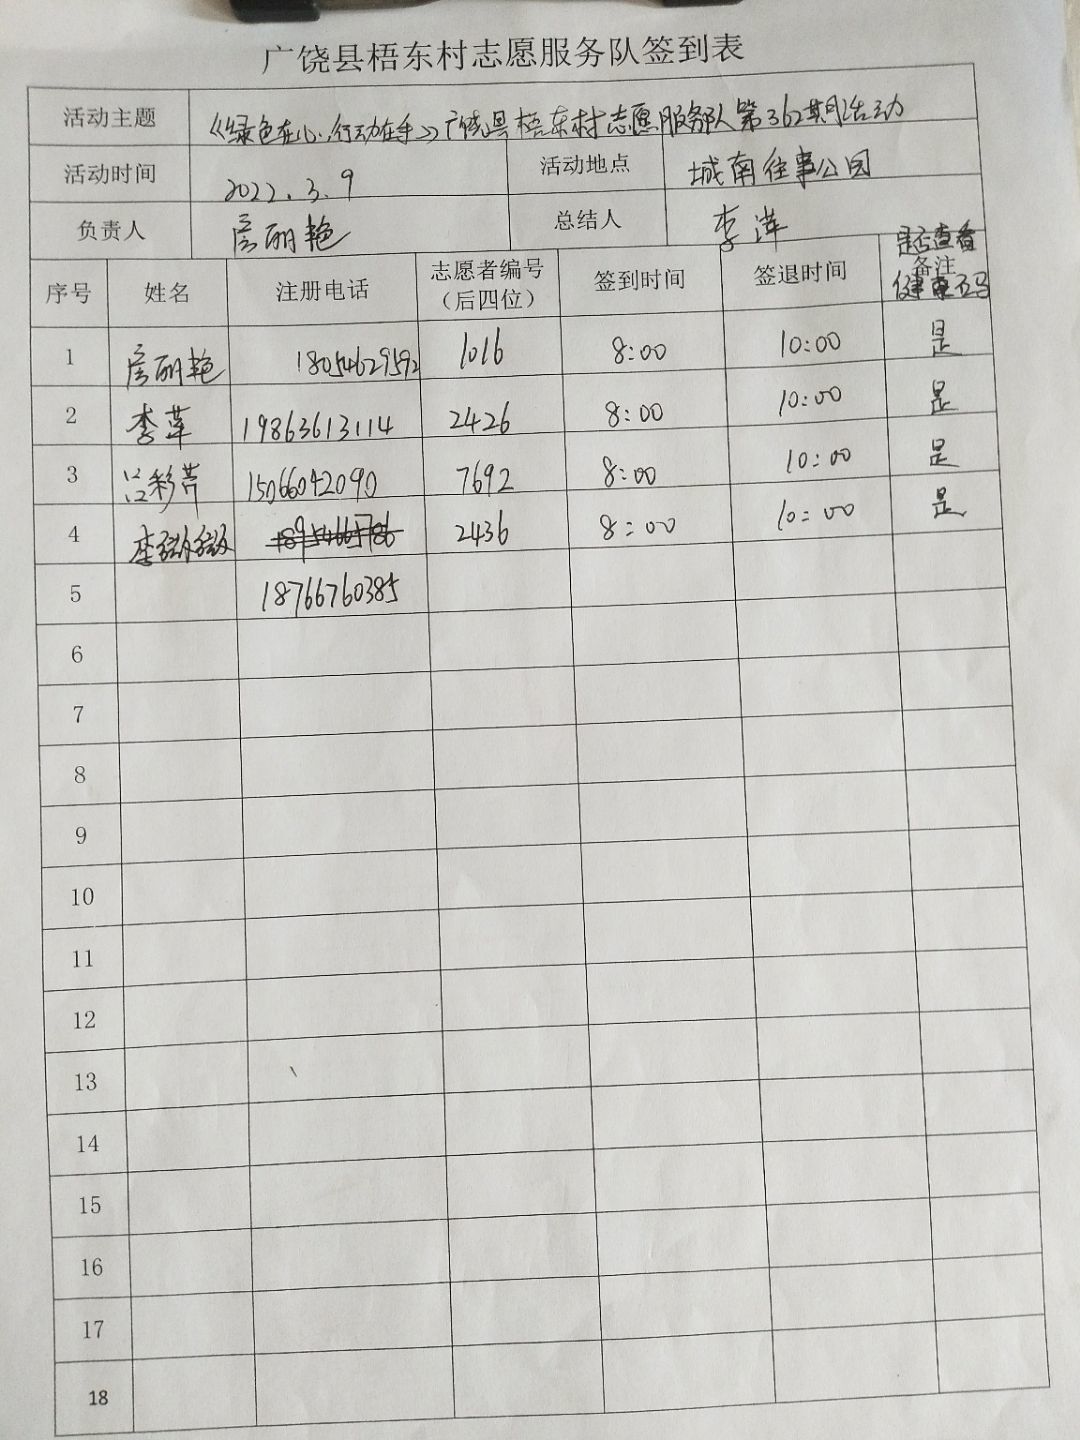 广饶县梧东村志愿服务队签到表
活动主题 《绿色在心,行动在手》广饶县梧东村志愿服务队第362期活动
活动时间 2022.3.9 活动地点 城南往事公园
负责人 房丽艳 总结人 李萍
序号 姓名 注册电话 志愿者编号（后四位） 签到时间 签退时间 备注 是否查看健康码
1 房丽艳 18054629592 1016 8:00 10:00 是
2 李莲 19863613114 2426 8:00 10:00 是
3 吕彩芹 15066042090 7692 8:00 10:00 是
4 李 18954665786 2436 8:00 10:00 是
5 18766760385
6
7
8
9
10
11
12
13
14
15
16
17
18